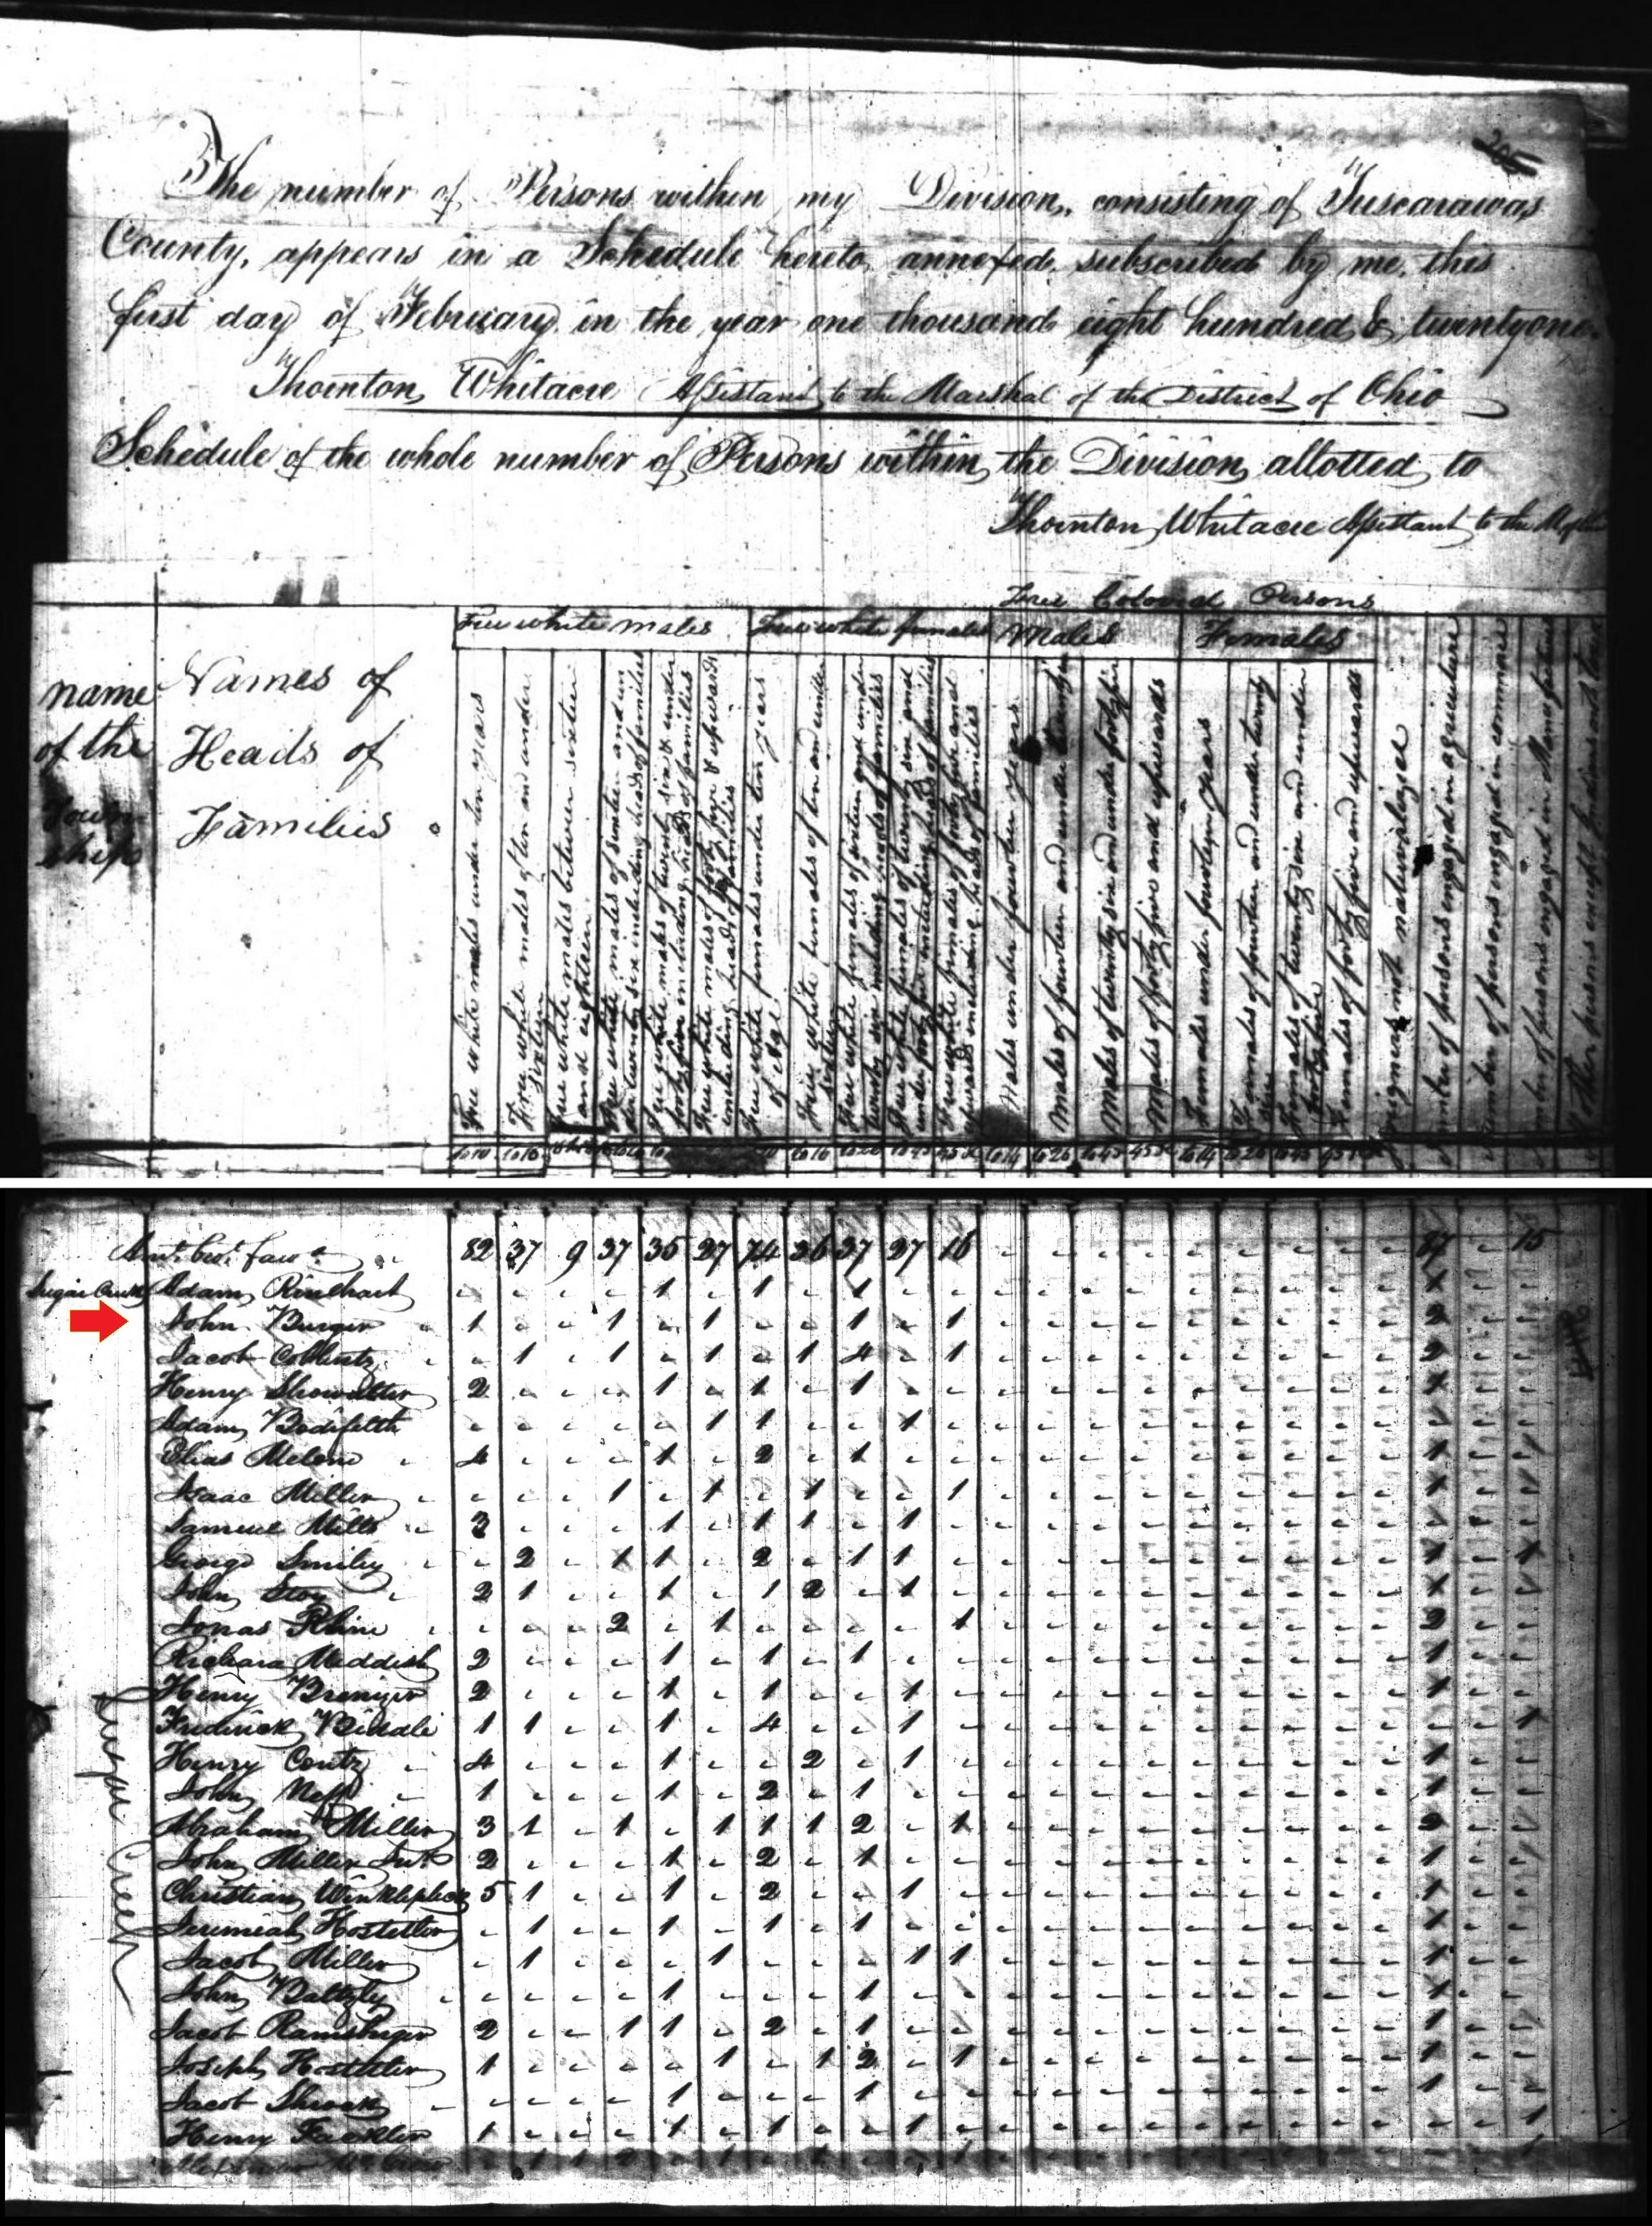 The number of Persons within my Division, consisting of Tuscarawas
County, appears in a Schedule hereto annexed, subscribed by me, this
first day of February in the year one thousand eight hundred & twentyone.
Thornton Whitacre Assistant to the Marshal of the District of Ohio
Schedule of the whole number of Persons within the Division allotted to
Thornton Whitacre Assistant to the
Free Colored Persons
Free white males Free white females Males Females
name of the Township
Names of Heads of Families
Free white males under ten years
Free white males of ten and under sixteen
Free white males between sixteen and eighteen
Free white males of sixteen and under twenty six including heads of families
Free white males of twenty six & under forty five including heads of families
Free white males of forty five & upwards including heads of families
Free white females under ten years of age
Free white females of ten and under sixteen
Free white females of sixteen and under twenty six including heads of families
Free white females of twenty six and under forty five including heads of families
Free white females of forty five and upwards including heads of families
Males under fourteen years
Males of fourteen and under twenty six
Males of twenty six and under forty five
Males of forty five and upwards
Females under fourteen years
Females of fourteen and under twenty six
Females of twenty six and under forty five
Females of forty five and upwards
Foreigners not naturalized
number of persons engaged in agriculture
number of persons engaged in commerce
number of persons engaged in Manufactures
82 37 9 37 35 27 74 26 37 27 16 87 15
Sugar Creek Adam Rinehart 1 1 1 1
John Burger 1 1 1 1 1 2
Jacob Coblentz 1 1 1 1 4 1 2
Henry Showalter 2 1 1 1 1
Adam 1 1 1
Elias 4 1 2 1 1
Isaac Miller 1 1 1 1
Samuel Mills 3 1 1 1 1
George Smiley 2 1 1 2 1 1 1 1
John Stoy 2 1 1 1 2 1 1
Jonas Rhine 2 1 1 2
Richard Meddish 2 1 1 1 1
Henry 2 1 1 1 1
Frederick 1 1 1 4 1 1
Henry Contz 4 1 2 1 1
John Neff 1 1 2 1 1
Abraham Miller 3 1 1 1 1 1 2 1 2
John Miller 2 1 2 1 1
Christian Winklepleck 5 1 1 2 1 1
Jeremiah Hostetler 1 1 1 1 1
Jacob Miller 1 1 1 1 1
John Baltzly 1 1 1
Jacob Ramsberger 2 1 1 2 1 1
Joseph Hostetler 1 1 1 2 1
Jacob Shrock 1 1 1
Henry Fackler 1 1 1 1 1
Sugar Creek